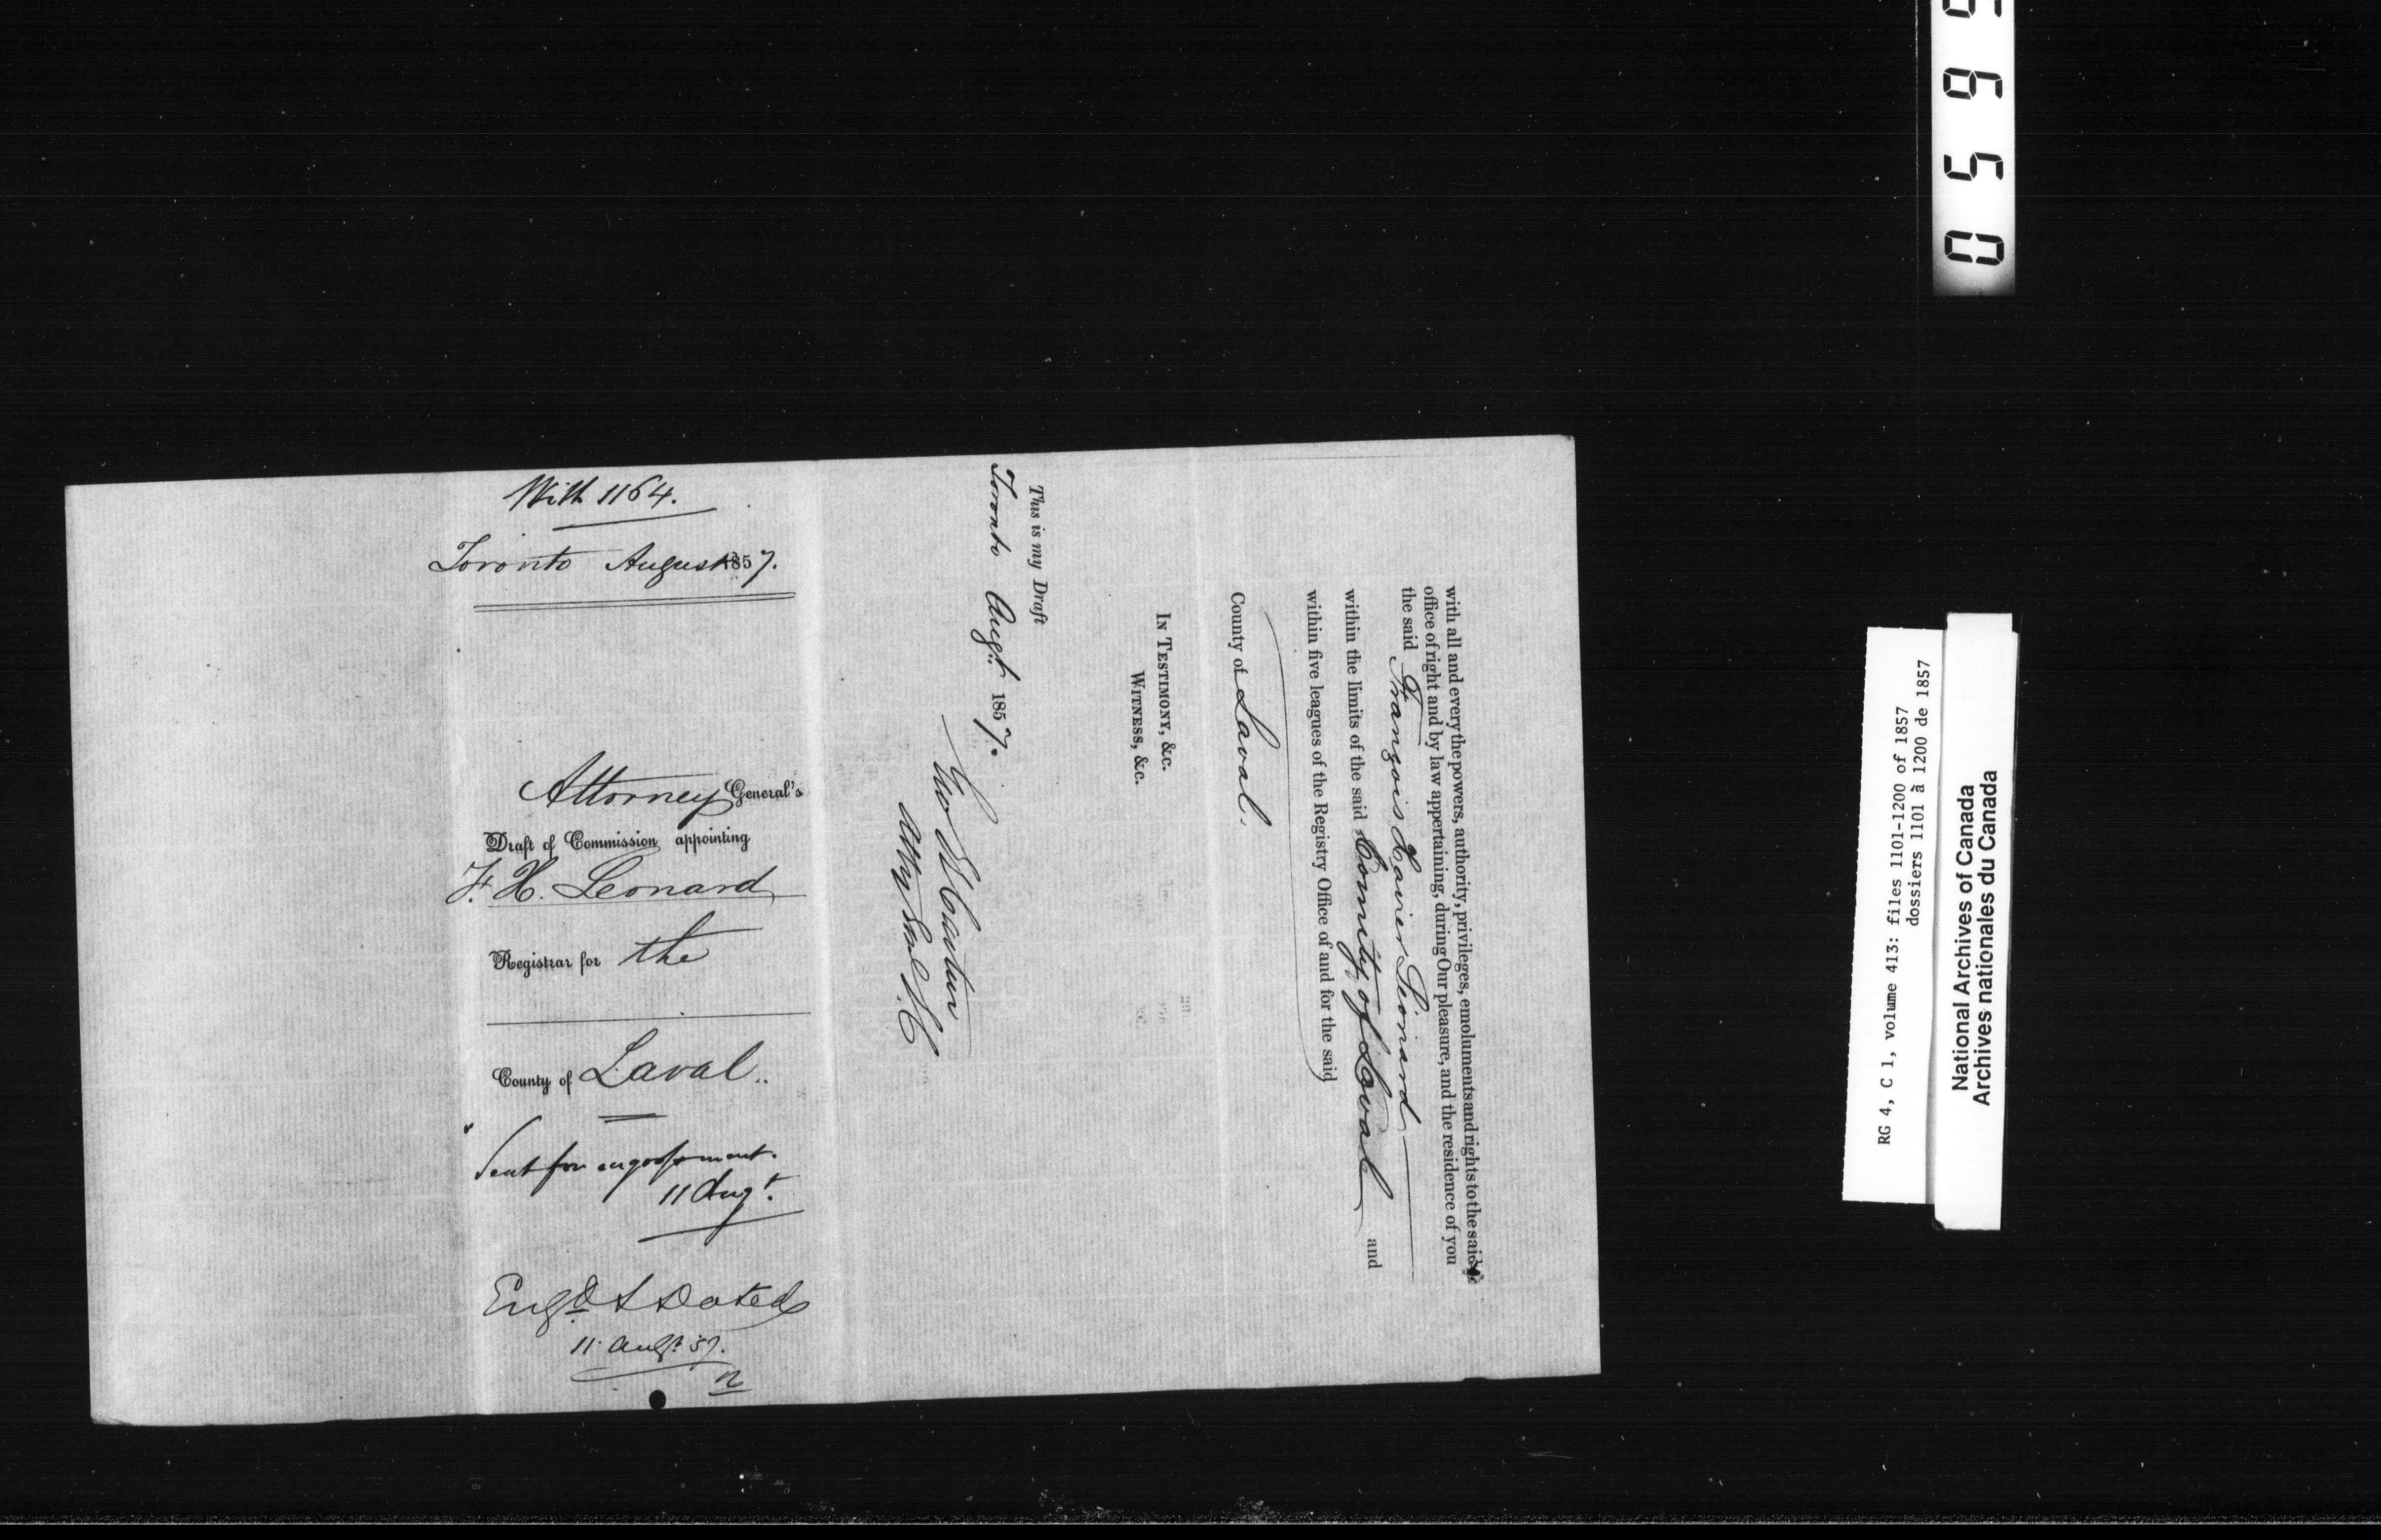 With 1164.
Toronto August 1857.
Attorney General's
Draft of Commission appointing
F. X. Leonard
Registrar for the
County of Laval.
Sent for engrossment.
11 Augt.
Engd & Dated
11 Augt. 57.
with all and every the powers, authority, privileges, emoluments and rights to the said
office of right and by law appertaining, during Our pleasure, and the residence of you
the said François Xavier Léonard
within the limits of the said County of Laval and
within five leagues of the Registry Office of and for the said
County of Laval.
In Testimony, &c.
Witness, &c.
This is my Draft
Toronto Augt. 1857.
Geo E Cartier
Atty Genl L.C
0599
RG 4, C 1, volume 413: files 1101-1200 of 1857
dossiers 1101 à 1200 de 1857
National Archives of Canada
Archives nationales du Canada